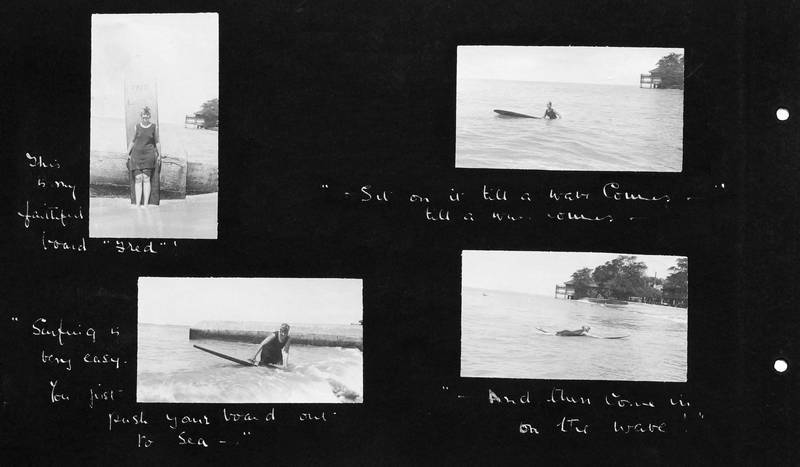 This
is my
faithful
board "Fred"!
"Surfing is
very easy.
You just
push your board out
to sea —."
"– Sit on it till a wave Comes – "
till a wave comes –
"– And then Come in
on the wave!"